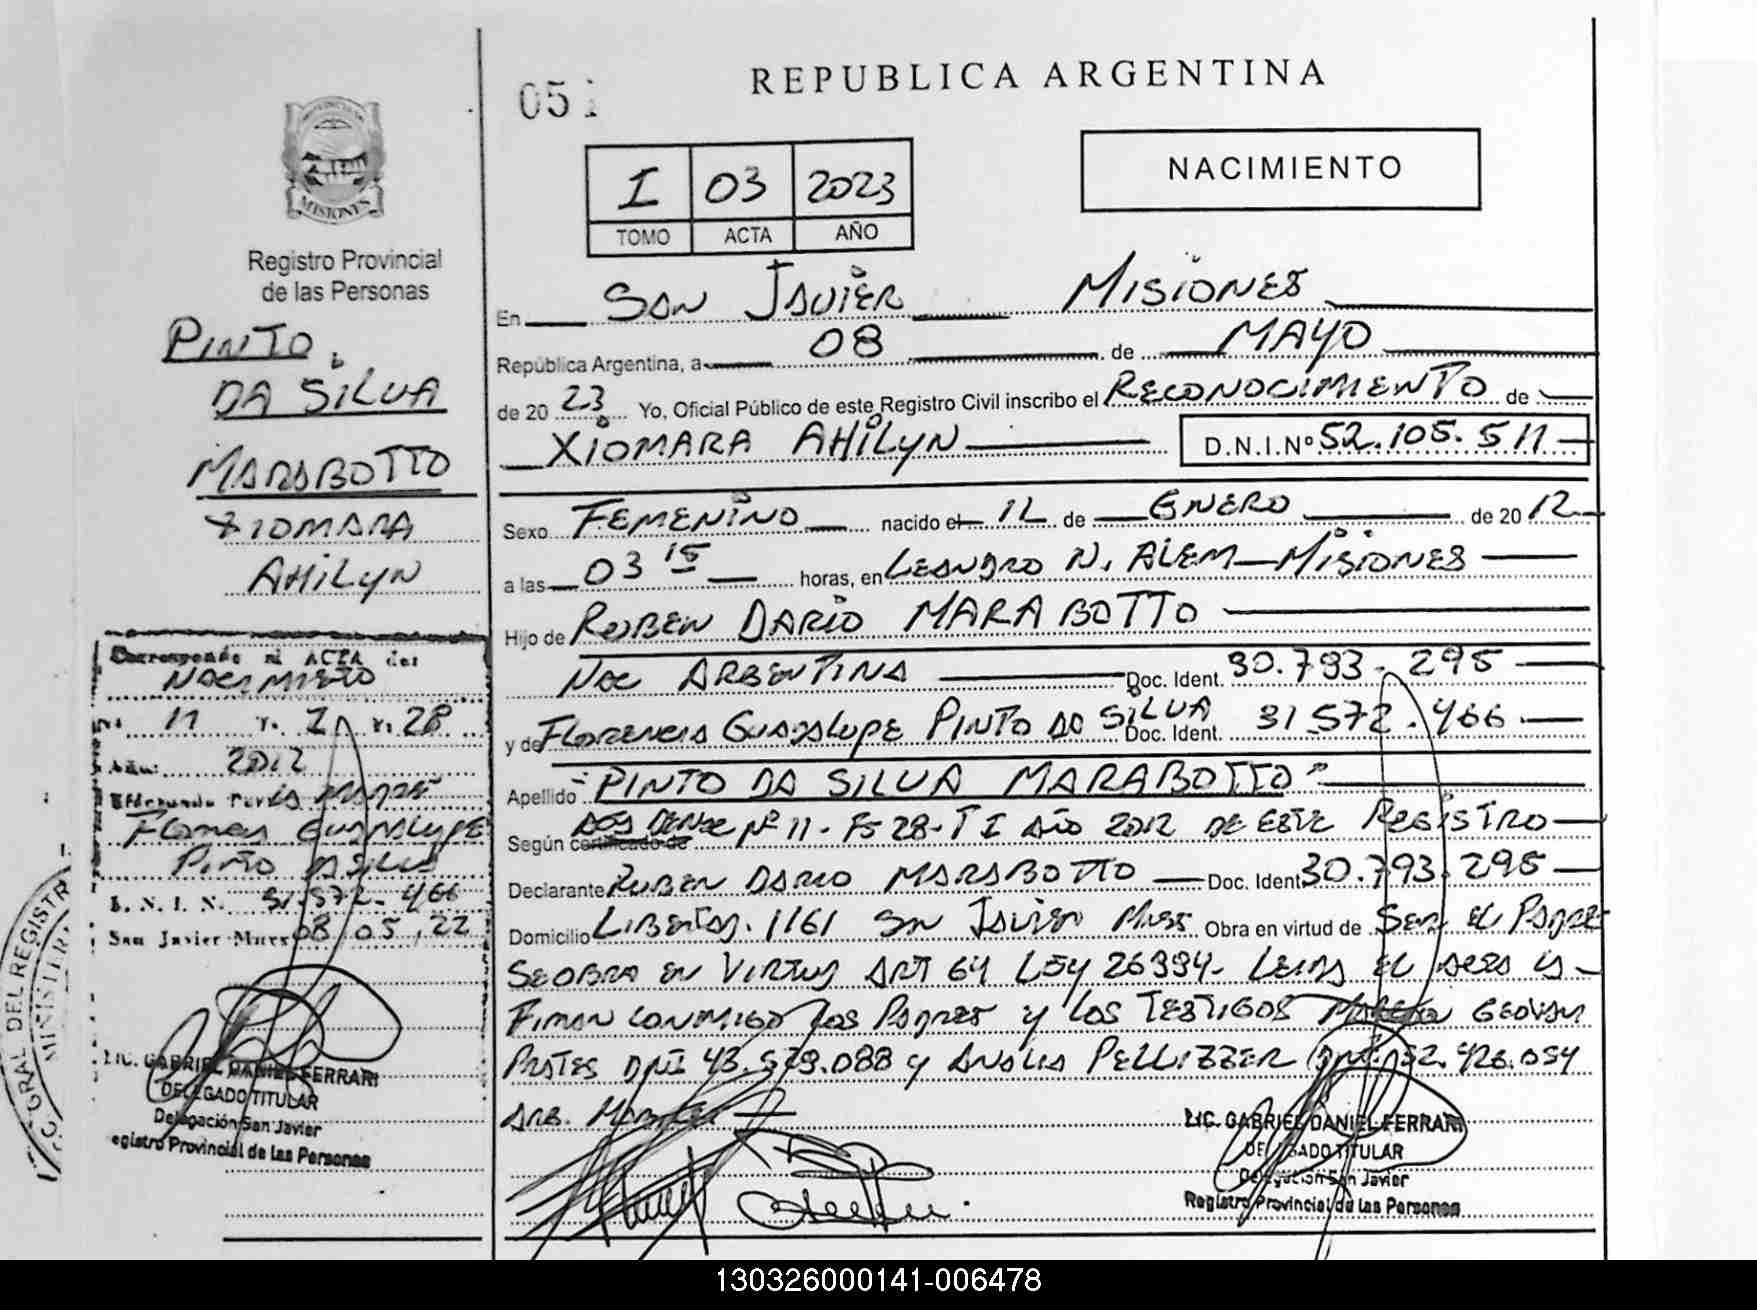 051
REPUBLICA ARGENTINA
NACIMIENTO
I 03 2023
TOMO ACTA AÑO
MISIONES
Registro Provincial
de las Personas
PINTO
DA SILVA
MARABOTTO
XIOMARA
AHILYN
En SAN JAVIER MISIONES
República Argentina, a 08 de MAYO
de 20 23 Yo, Oficial Público de este Registro Civil inscribo el RECONOCIMIENTO de
XIOMARA AHILYN D.N.I.Nº 52.105.511
Sexo FEMENINO nacido el 12 de ENERO de 20 12
a las 03 15 horas, en LEANDRO N. ALEM - MISIONES
Hijo de RUBEN DARIO MARABOTTO
NAC ARGENTINA Doc. Ident. 30.793.295
y de FLORENCIA GUADALUPE PINTO DA SILVA Doc. Ident. 31.572.466
Apellido "PINTO DA SILVA MARABOTTO"
Según certificado de Nº 11 - Fº 28 - T I AÑO 2012 DE ESTE REGISTRO
Declarante RUBEN DARIO MARABOTTO Doc. Ident 30.793.295
Domicilio LIBERTAD. 1161 SAN JAVIER Mnes Obra en virtud de SER EL PADRE
SE OBRA EN VIRTUD ART 64 LEY 26994 - LEIDA EL ACTA LA
FIRMAN CONMIGO LOS PADRES Y LOS TESTIGOS GEOVANI
PRATES DNI 43.579.088 Y ANALIA PELLIZZER DNI 32.426.054
ARG.
Corresponde al ACTA de:
NACIMIENTO
Nº 11 T. I F. 28
Año: 2012
Efectuado Por: LA MADRE
GUADALUPE
PINTO DA SILVA
D. N. I. N. 31.572.466
San Javier Mnes 08/05/22
LIC. GABRIEL DANIEL FERRARI
DELEGADO TITULAR
Delegación San Javier
egistro Provincial de las Personas
LIC. GABRIEL DANIEL FERRARI
DELEGADO TITULAR
Delegación San Javier
Registro Provincial de las Personas
GRAL DEL REGISTR
MINISTERI
130326000141-006478